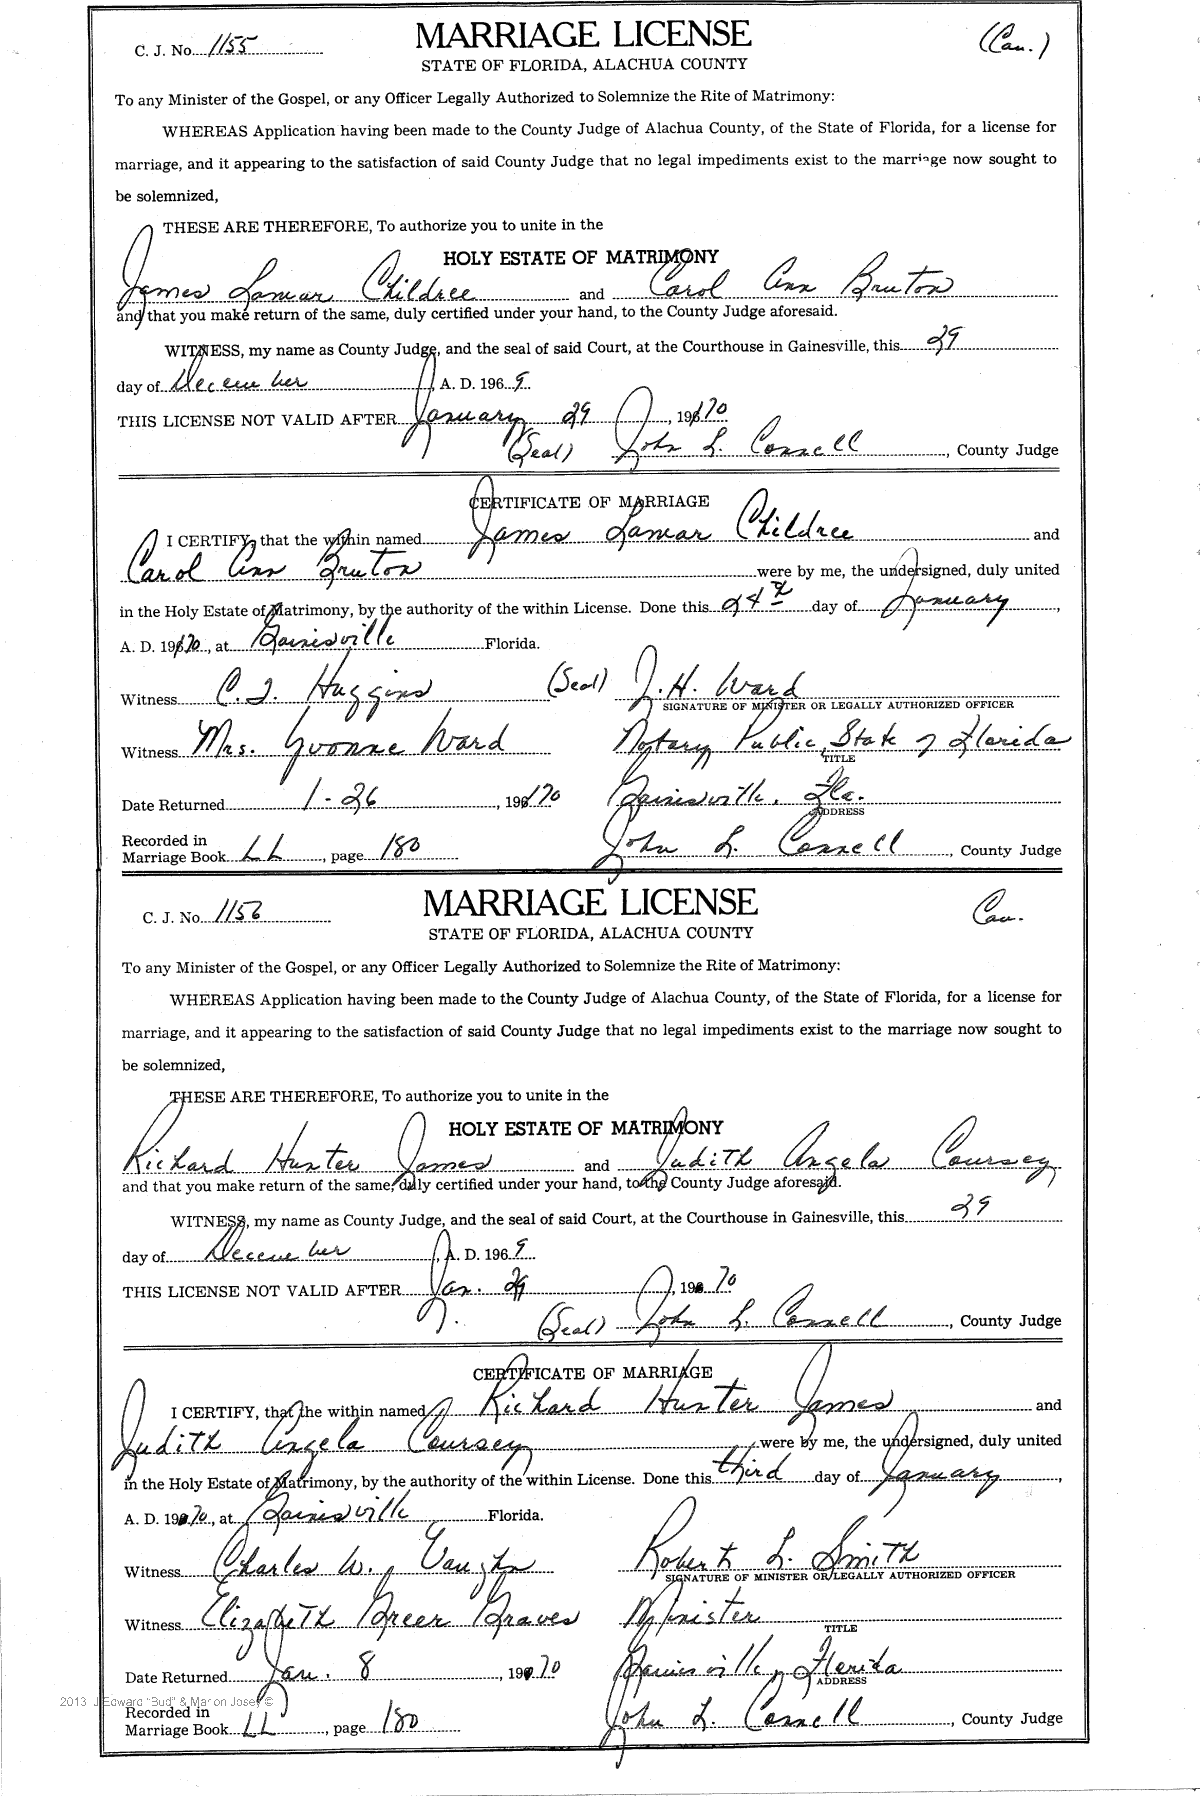 C. J. No. 1155 MARRIAGE LICENSE (Cau.)
STATE OF FLORIDA, ALACHUA COUNTY
To any Minister of the Gospel, or any Officer Legally Authorized to Solemnize the Rite of Matrimony:
WHEREAS Application having been made to the County Judge of Alachua County, of the State of Florida, for a license for
marriage, and it appearing to the satisfaction of said County Judge that no legal impediments exist to the marriage now sought to
be solemnized,
THESE ARE THEREFORE, To authorize you to unite in the
HOLY ESTATE OF MATRIMONY
James Lamar Childree and Carol Ann Bruton
and that you make return of the same, duly certified under your hand, to the County Judge aforesaid.
WITNESS, my name as County Judge, and the seal of said Court, at the Courthouse in Gainesville, this 29
day of December, A. D. 1969.
THIS LICENSE NOT VALID AFTER January 29, 1970
(Seal) John L. Connell, County Judge
CERTIFICATE OF MARRIAGE
I CERTIFY, that the within named James Lamar Childree and
Carol Ann Bruton were by me, the undersigned, duly united
in the Holy Estate of Matrimony, by the authority of the within License. Done this 24th day of January,
A. D. 1970, at Gainisville Florida.
Witness C. J. Huggins (Seal) J. H. Ward
SIGNATURE OF MINISTER OR LEGALLY AUTHORIZED OFFICER
Witness Mrs. Yvonne Ward Notary Public, State of Florida
TITLE
Date Returned 1-26, 1970 Gainisville, Fla.
ADDRESS
Recorded in
Marriage Book LL, page 180 John L. Connell, County Judge
C. J. No. 1156 MARRIAGE LICENSE Cau.
STATE OF FLORIDA, ALACHUA COUNTY
To any Minister of the Gospel, or any Officer Legally Authorized to Solemnize the Rite of Matrimony:
WHEREAS Application having been made to the County Judge of Alachua County, of the State of Florida, for a license for
marriage, and it appearing to the satisfaction of said County Judge that no legal impediments exist to the marriage now sought to
be solemnized,
THESE ARE THEREFORE, To authorize you to unite in the
HOLY ESTATE OF MATRIMONY
Richard Hunter James and Judith Angela Coursey
and that you make return of the same, duly certified under your hand, to the County Judge aforesaid.
WITNESS, my name as County Judge, and the seal of said Court, at the Courthouse in Gainesville, this 29
day of December, A. D. 1969.
THIS LICENSE NOT VALID AFTER Jan. 29, 1970
(Seal) John L. Connell, County Judge
CERTIFICATE OF MARRIAGE
I CERTIFY, that the within named Richard Hunter James and
Judith Angela Coursey were by me, the undersigned, duly united
in the Holy Estate of Matrimony, by the authority of the within License. Done this third day of January,
A. D. 1970, at Gainisville Florida.
Witness Charles W. Vaughn Robert L. Smith
SIGNATURE OF MINISTER OR LEGALLY AUTHORIZED OFFICER
Witness Elizabeth Greer Graves Minister
TITLE
Date Returned Jan. 8, 1970 Gainisville, Florida
ADDRESS
2013 J Edward "Bud" & Marion Josey ©
Recorded in
Marriage Book LL, page 180 John L. Connell, County Judge